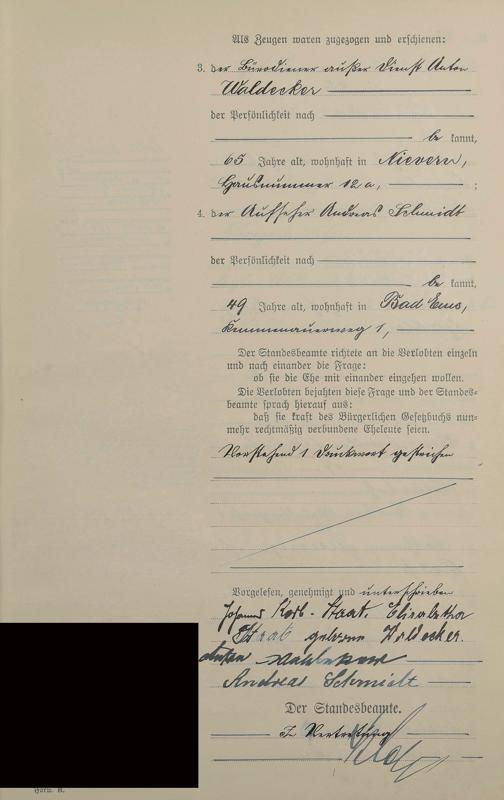 Als Zeugen waren zugezogen und erschienen:
3. der Bürodiener außer Dienst Anton
Waldecker
der Persönlichkeit nach
be kannt,
65 Jahre alt, wohnhaft in Nievern,
Hausnummer 12 a, ;
4. der Aufseher Andreas Schmidt
der Persönlichkeit nach
be kannt,
49 Jahre alt, wohnhaft in Bad Ems,
Kemmenauerweg 1,
Der Standesbeamte richtete an die Verlobten einzeln
und nach einander die Frage:
ob sie die Ehe mit einander eingehen wollen.
Die Verlobten bejahten diese Frage und der Standes=
beamte sprach hierauf aus:
daß sie kraft des Bürgerlichen Gesetzbuchs nun=
mehr rechtmäßig verbundene Eheleute seien.
Vorstehend 1 Druckwort gestrichen
Vorgelesen, genehmigt und unterschrieben
Johann Staat. Elisabetha
Staat geborene Waldecker.
Anton Waldecker
Andreas Schmidt
Der Standesbeamte.
In Vertretung
Form. H.